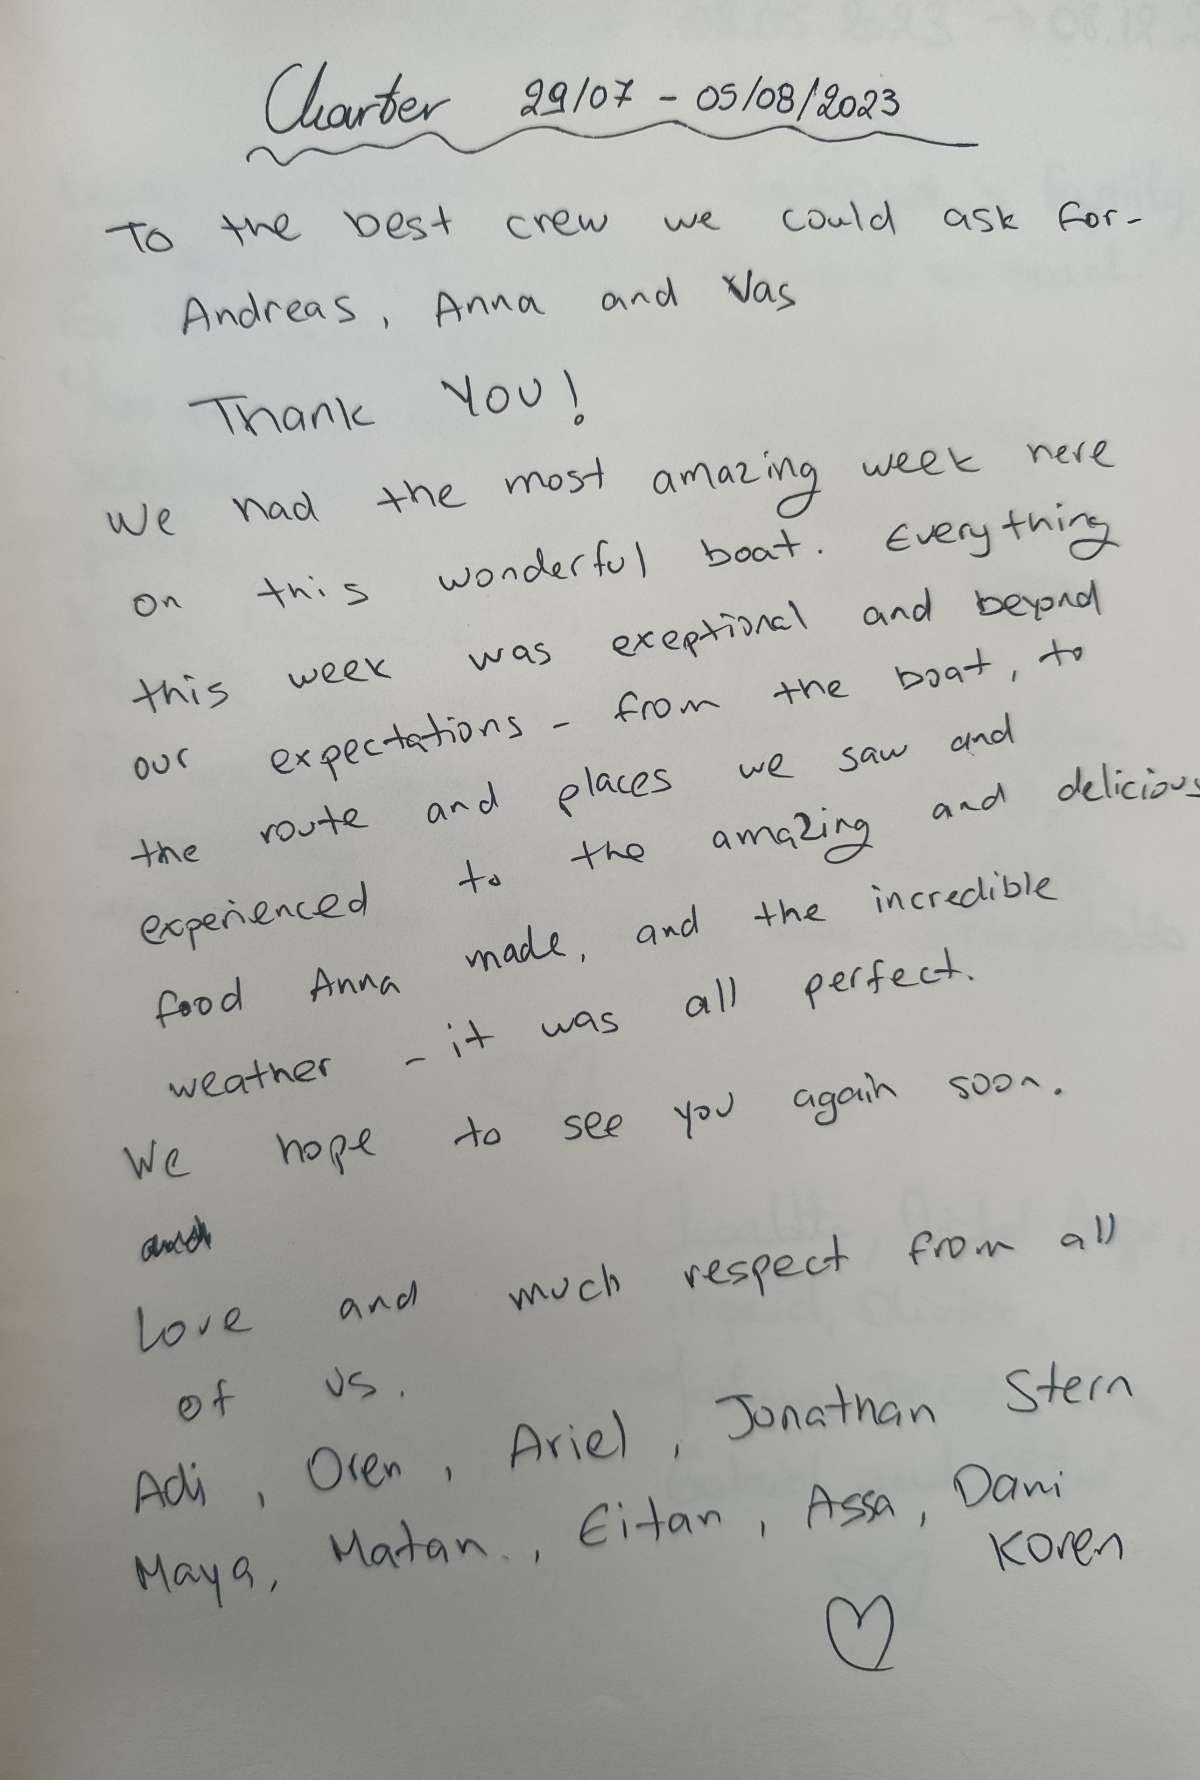 Charter 29/07 - 05/08/2023
To the best crew we could ask for-
Andreas, Anna and Vas
Thank YOU!
We had the most amazing week here
on this wonderful boat. Everything
this week was exeptional and beyond
our expectations - from the boat, to
the route and places we saw and
experienced to the amazing and delicious
food Anna made, and the incredible
weather - it was all perfect.
We hope to see you again soon.
Love and much respect from all
of us.
Adi, Oren, Ariel, Jonathan Stern
Maya, Matan., Eitan, Assa, Dani
Koren